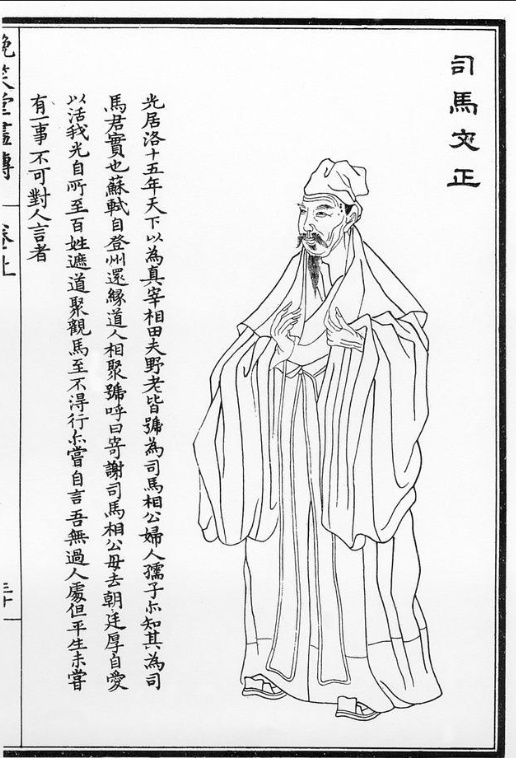 司馬文正
光居洛十五年天下以為真宰相田夫野老皆號為司馬相公婦人孺子亦知其為司
馬君實也蘇軾自登州還緣道人相聚號呼曰寄謝司馬相公毋去朝廷厚自愛
以活我光自所至百姓遮道聚觀馬至不得行亦嘗自言吾無過人處但平生未嘗
有一事不可對人言者
晚笑堂畫傳
卷上
三十